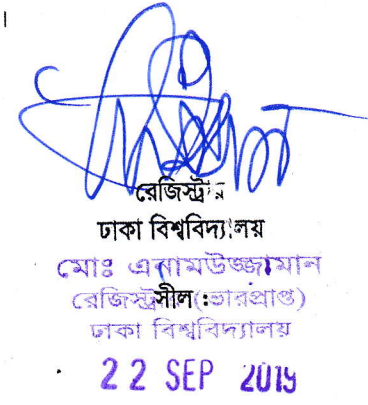 ।
রেজিস্ট্রার
ঢাকা বিশ্ববিদ্যালয়
মোঃ এনামউজ্জামান
রেজিস্ট্রার (ভারপ্রাপ্ত)
সীল :
ঢাকা বিশ্ববিদ্যালয়
22 SEP 2019